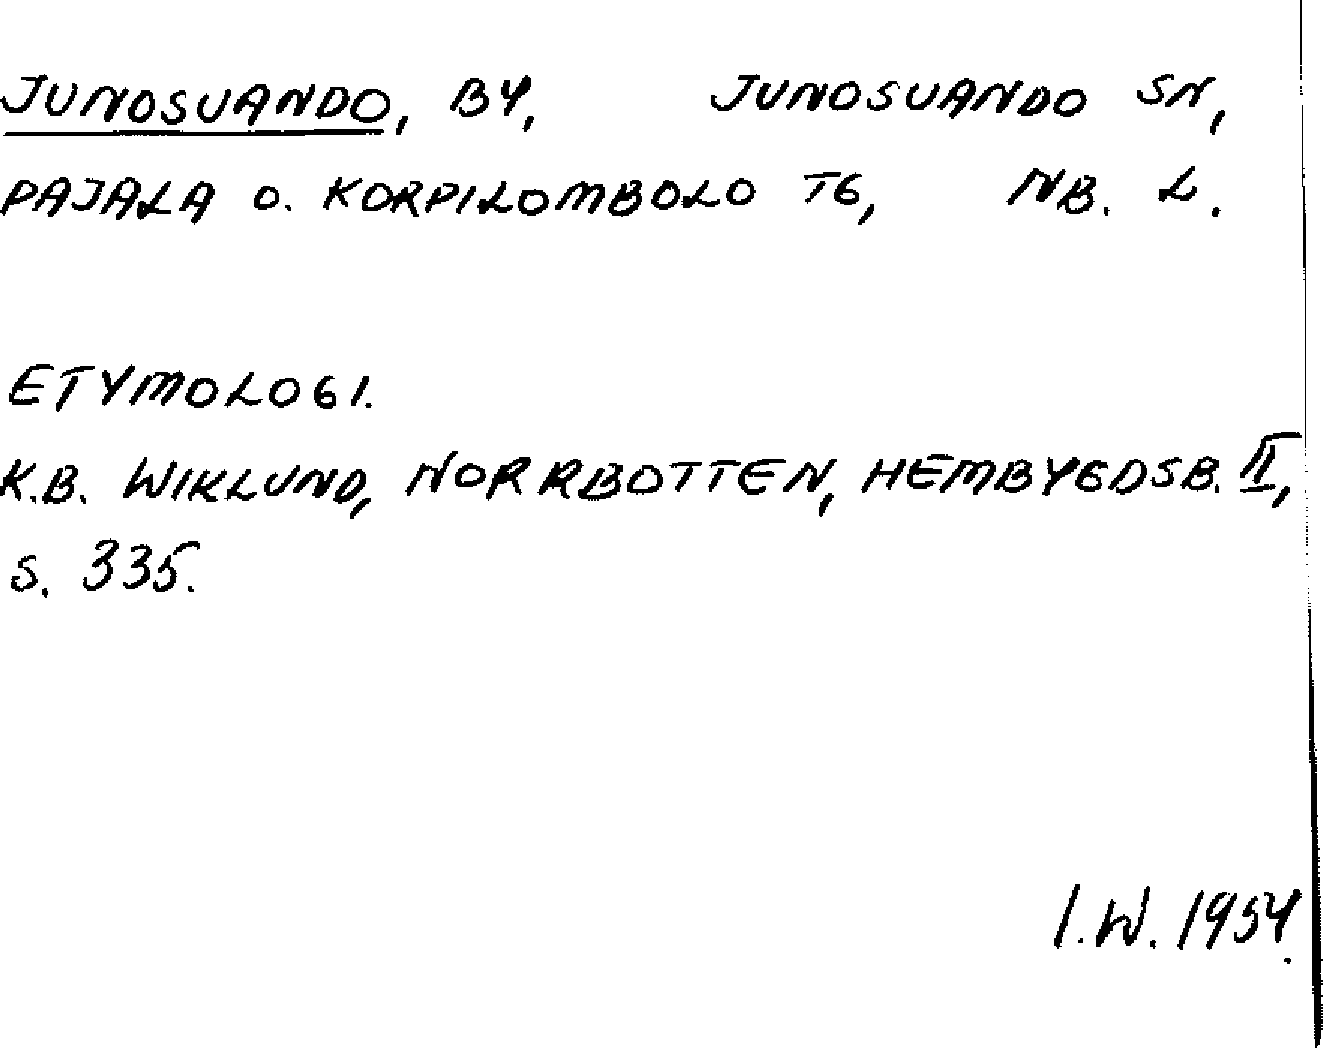 JUNOSUANDO, BY, JUNOSUANDO SN,
PAJALA O. KORPILOMBOLO TG, NB. L.
ETYMOLOGI.
K.B. WIKLUND, NORRBOTTEN, HEMBYGDSB. II,
S. 335.
I.W. 1954.